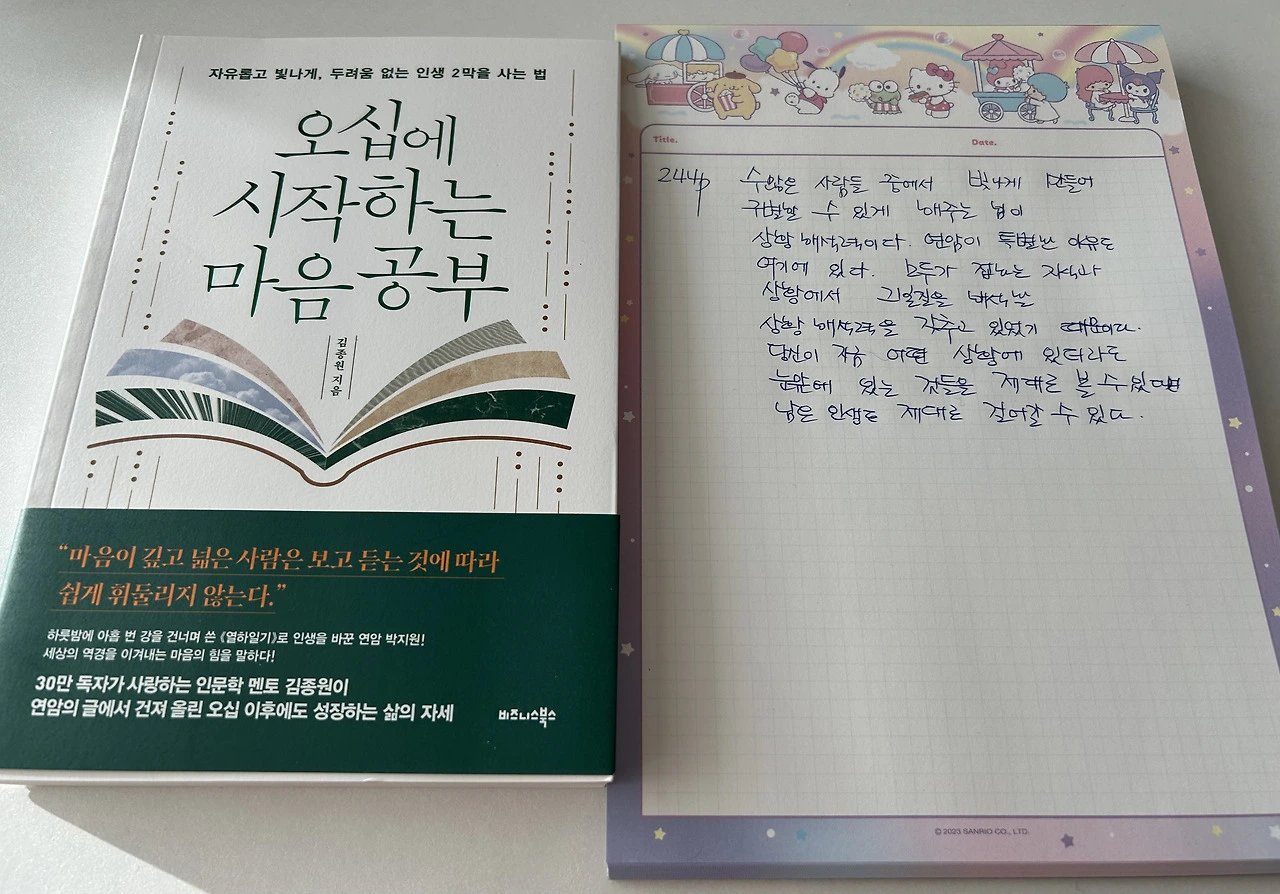 자유롭고 빛나게, 두려움 없는 인생 2막을 사는 법
오십에
시작하는
마음 공부
김종원 지음
“마음이 깊고 넓은 사람은 보고 듣는 것에 따라
쉽게 휘둘리지 않는다.”
하룻밤에 아홉 번 강을 건너며 쓴 《열하일기》로 인생을 바꾼 연암 박지원!
세상의 역경을 이겨내는 마음의 힘을 말하다!
30만 독자가 사랑하는 인문학 멘토 김종원이
연암의 글에서 건져 올린 오십 이후에도 성장하는 삶의 자세
비즈니스북스
Title.
Date.
244p
수많은 사람들 중에서 빛나게 만들어
구별할 수 있게 해주는 힘이
상황 해석력이다. 연암이 특별한 이유도
여기에 있다. 모두가 접하는 지식과
상황에서 그 일질을 해석한
상황 해석력을 갖추고 있었기 때문이다.
당신이 지금 어떤 상황에 있더라도
눈앞에 있는 것들을 제대로 볼 수 있다면
남은 인생도 제대로 걸어갈 수 있다.
© 2023 SANRIO CO., LTD.